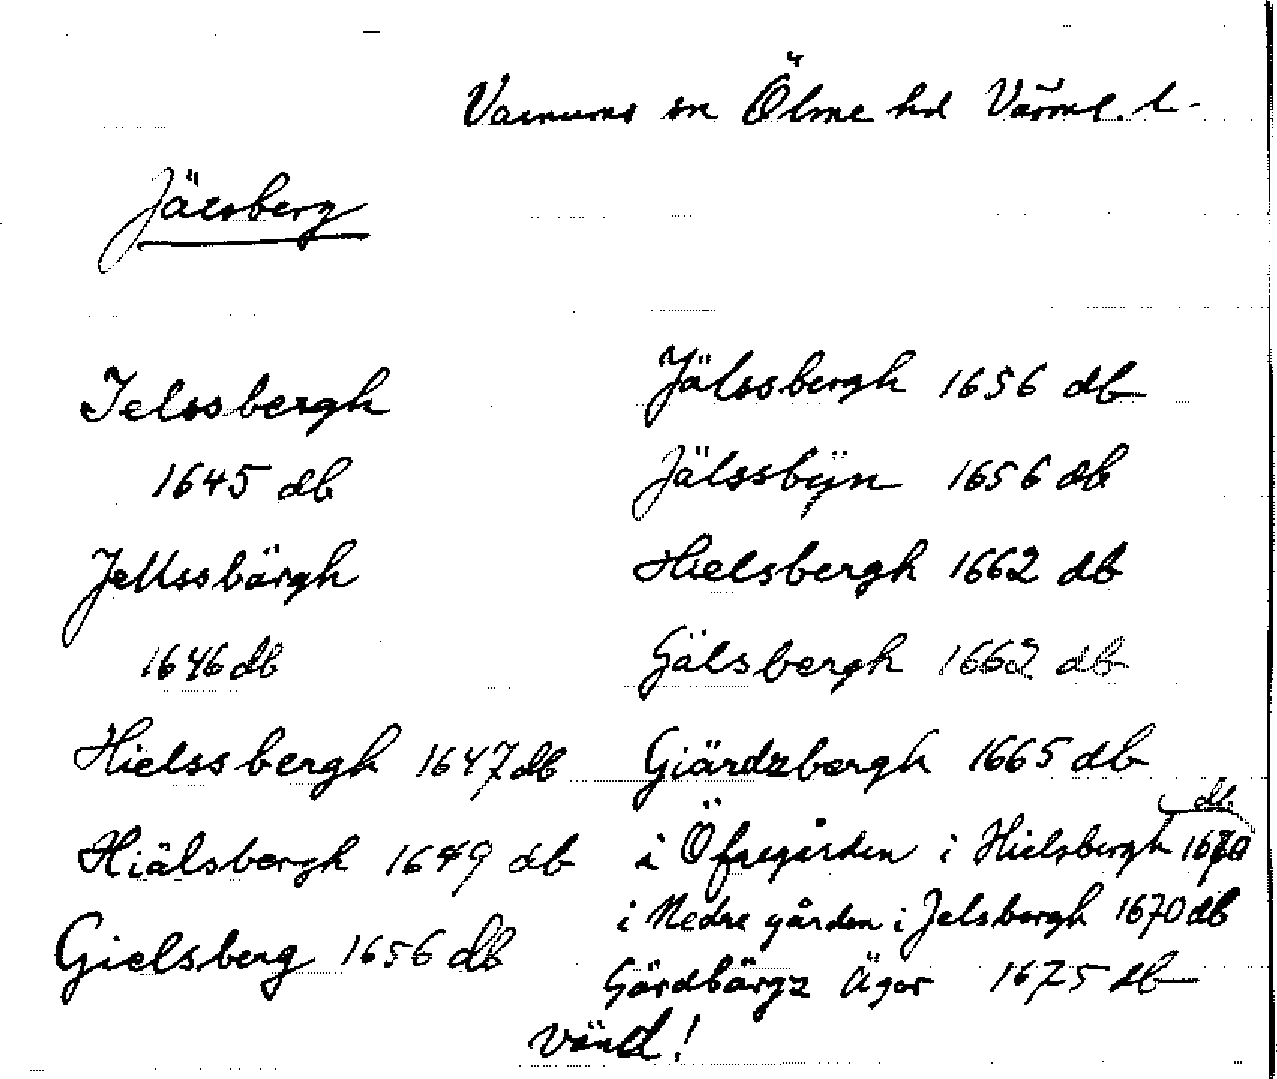 Varnums sn Ölme hd Värml. l.
Jälsberg
Jelssbergh
1645 db
Jellssbärgh
1646 db
Hielssbergh 1647 db
Hiälsbergh 1649 db
Gielsberg 1656 db
Jälssbergh 1656 db
Jälssbÿn 1656 db
Hielsbergh 1662 db
Gälsbergh 1662 db
Giärdzbergh 1665 db
i Öfregården i Hielsbergh 1670 db
i Nedre gården i Jelsbergh 1670 db
Gärdbärgz Ägor 1675 db
vänd!